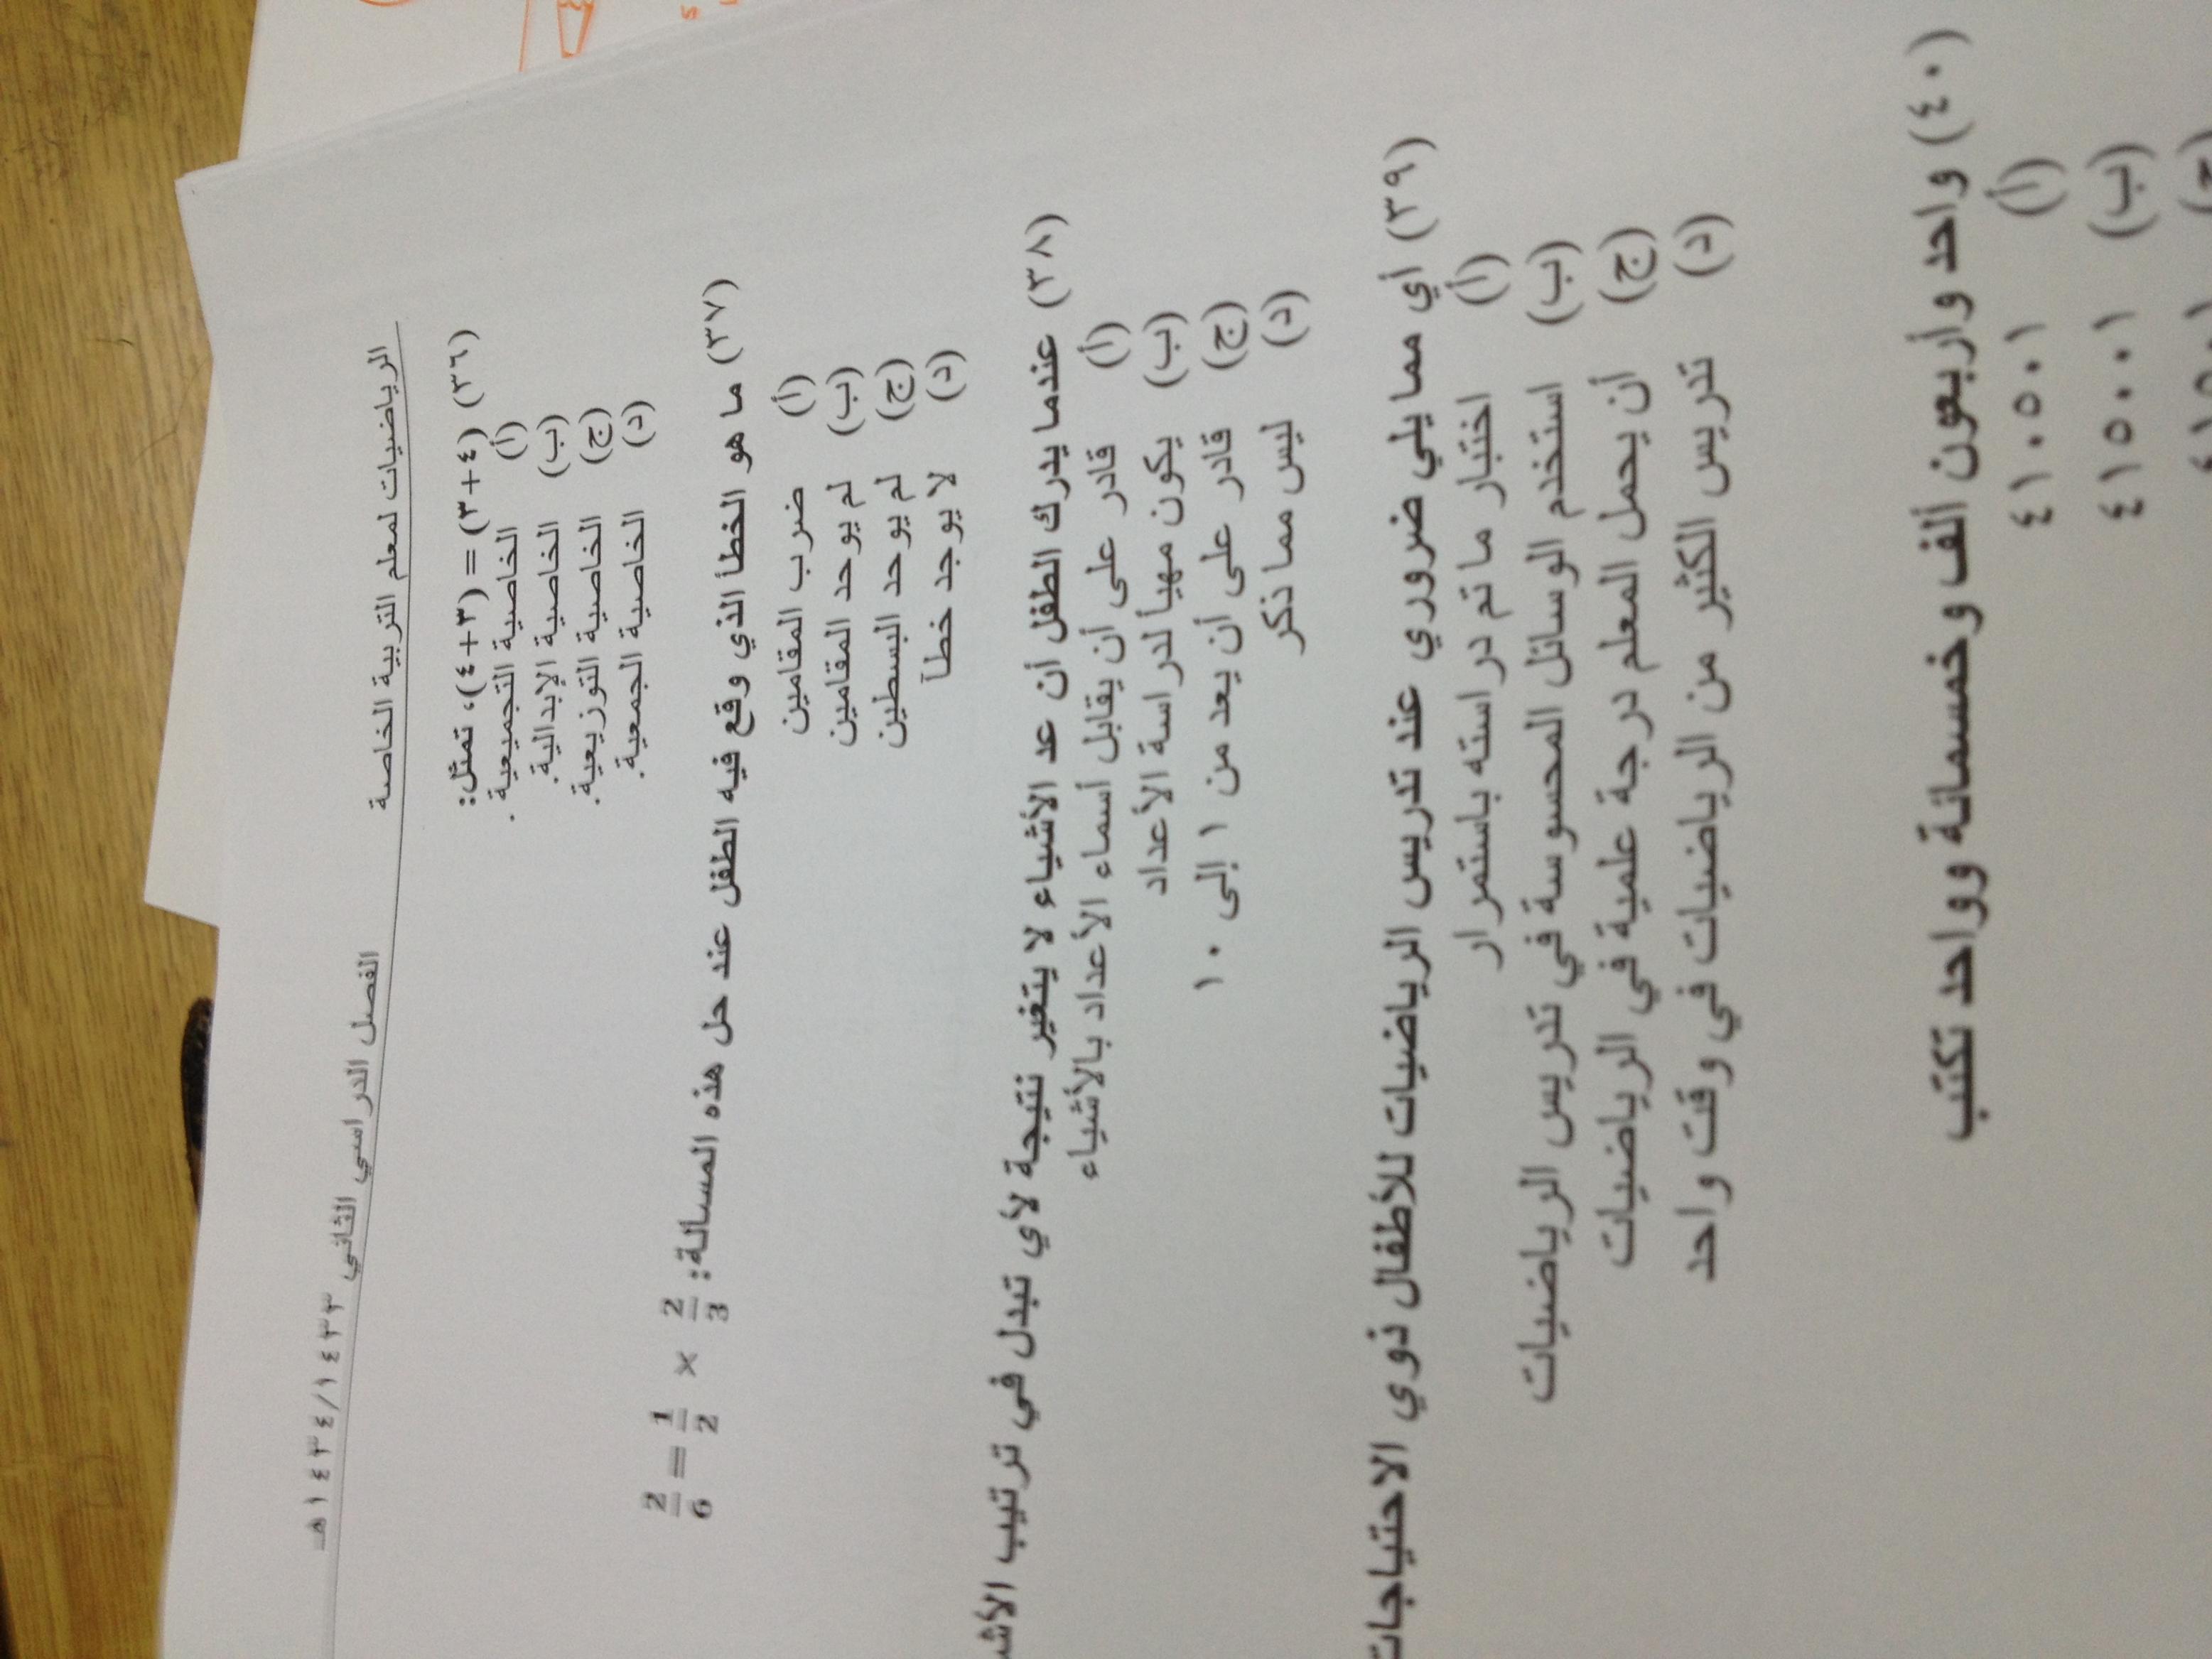 الرياضيات لمعلم التربية الخاصة الفصل الدراسي الثاني ١٤٣٤/١٤٣٣هـ
(٣٦) (٤+٣) = (٣+٤)، تمثل:
(أ) الخاصية التجميعية.
(ب) الخاصية الإبدالية.
(ج) الخاصية التوزيعية.
(د) الخاصية الجمعية.
(٣٧) ما هو الخطأ الذي وقع فيه الطفل عند حل هذه المسألة: 2/3 × 1/2 = 2/6
(أ) ضرب المقامين
(ب) لم يوحد المقامين
(ج) لم يوحد البسطين
(د) لا يوجد خطأ
(٣٨) عندما يدرك الطفل أن عد الأشياء لا يتغير نتيجة لأي تبدل في ترتيب
(أ) قادر على أن يقابل أسماء الأعداد بالأشياء
(ب) يكون مهيأ لدراسة الأعداد
(ج) قادر على أن يعد من ١ إلى ١٠
(د) ليس مما ذكر
(٣٩) أي مما يلي ضروري عند تدريس الرياضيات للأطفال ذوي الاحتياجات
(أ) اختبار ما تم دراسته باستمرار
(ب) استخدم الوسائل المحسوسة في تدريس الرياضيات
(ج) أن يحمل المعلم درجة علمية في الرياضيات
(د) تدريس الكثير من الرياضيات في وقت واحد
(٤٠) واحد وأربعون ألف وخمسمائة وواحد تكتب
(أ) ٤١٠٥٠١
(ب) ٤١٥٠٠١